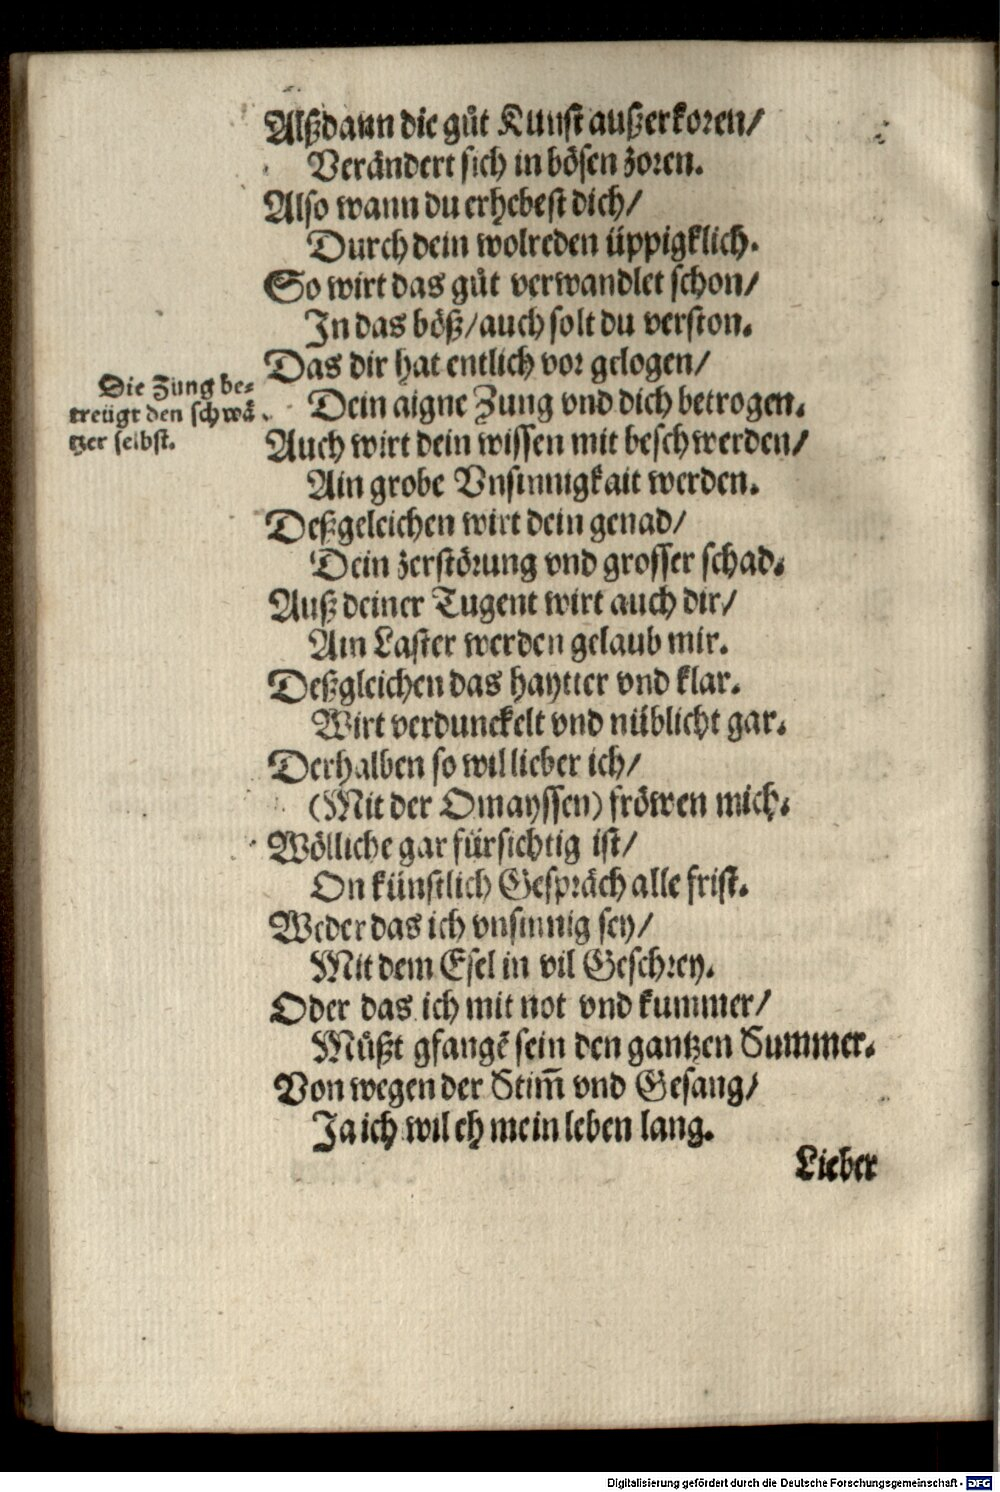 Alßdann die gůt Kunst außerkoren/
Verändert sich in bösen zoren.
Also wann du erhebest dich/
Durch dein wolreden üppigklich.
So wirt das gůt verwandlet schon/
In das böß/auch solt du verston.
Das dir hat entlich vor gelogen/
Die Zung be-
treügt den schwä
tzer selbst.
Dein aigne Zung vnd dich betrogen.
Auch wirt dein wissen mit beschwerden/
Ain grobe Vnsinnigkait werden.
Deßgeleichen wirt dein genad/
Dein zerstörung vnd grosser schad.
Auß deiner Tugent wirt auch dir/
Ain Laster werden gelaub mir.
Deßgleichen das haytter vnd klar.
Wirt verdunckelt vnd nüblicht gar.
Derhalben so wil lieber ich/
(Mit der Omayssen) fröwen mich.
Wölliche gar fürsichtig ist/
On künstlich Gespräch alle frist.
Weder das ich vnsinnig sey/
Mit dem Esel in vil Geschrey.
Oder das ich mit not vnd kummer/
Müßt gfangē sein den gantzen Summer.
Von wegen der Stim̄ vnd Gesang/
Ja ich wil eh mein leben lang.
Lieber
Digitalisierung gefördert durch die Deutsche Forschungsgemeinschaft - DFG